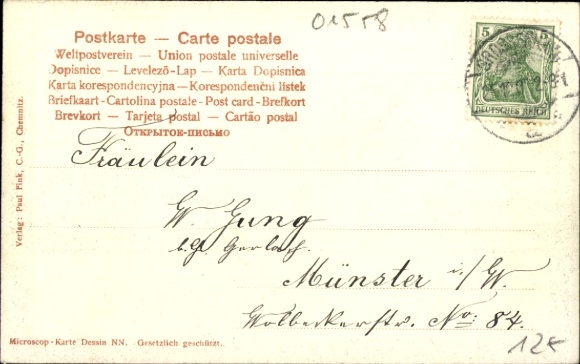 01558
Postkarte — Carte postale
Weltpostverein — Union postale universelle
Dopisnice — Levelező-Lap — Karta Dopisnica
Karta korespondencyjna — Korespondenční lístek
Briefkaart - Cartolina postale - Post card - Brefkort
Brevkort — Tarjeta postal — Cartão postal
Открытое-письмо
5
DEUTSCHES REICH
Fräulein
W. Jung
b. G. Gerlach.
Münster i/W.
Wolbeckerstr. No: 84.
12€
Verlag: Paul Fink, C.-G., Chemnitz.
Microscop-Karte Dessin NN. Gesetzlich geschützt.